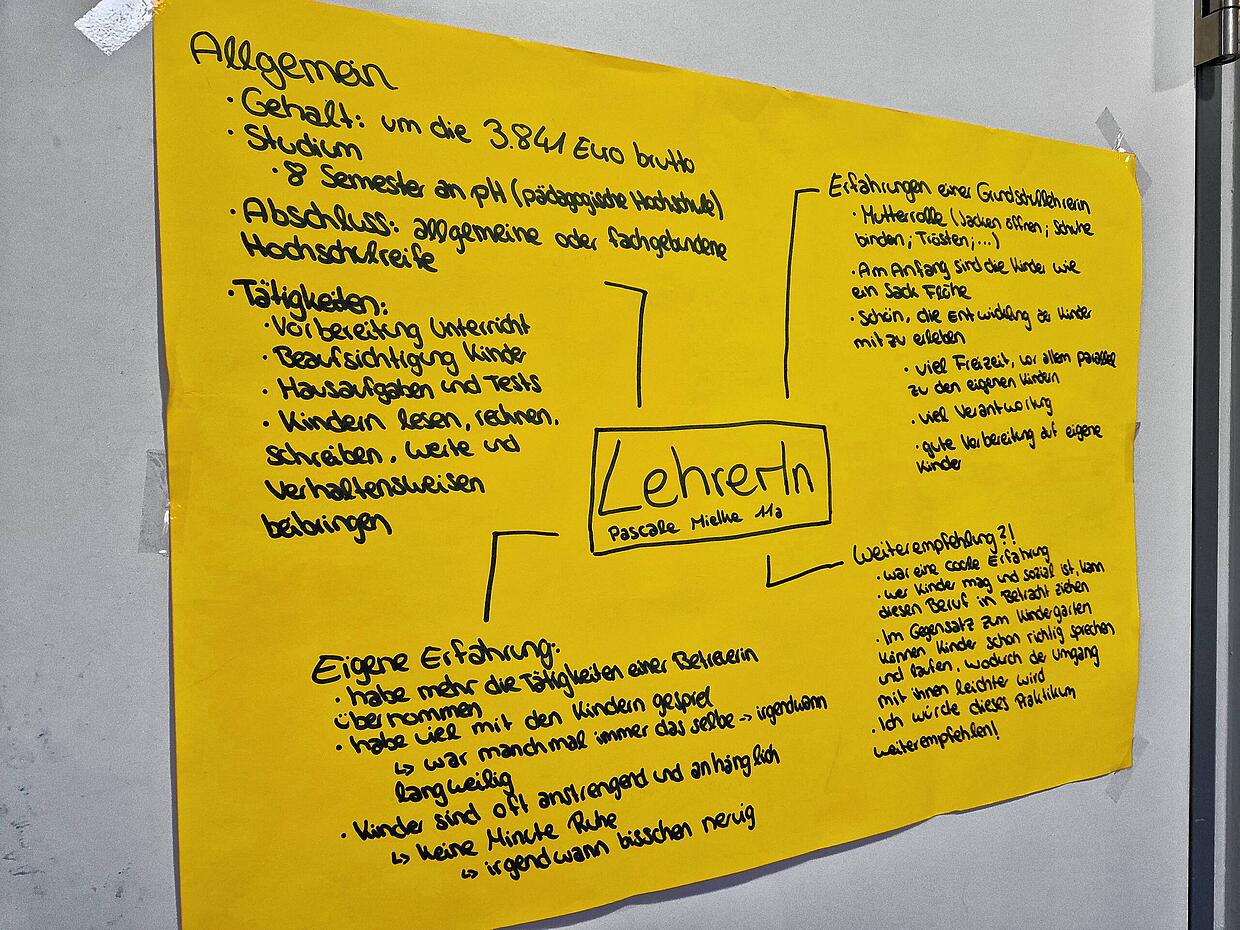 Allgemein
· Gehalt: um die 3.841 Euro brutto
· Studium
· 8 Semester an pH (pädagogische Hochschule)
· Abschluss: allgemeine oder fachgebundene
Hochschulreife
· Tätigkeiten:
· Vorbereitung Unterricht
· Beaufsichtigung Kinder
· Hausaufgaben und Tests
· Kindern lesen, rechnen,
schreiben, Werte und
Verhaltensweisen
beibringen
Erfahrungen einer Grundschullehrerin
· Mutterrolle (Jacken öffnen; Schuhe
binden; Trösten;...)
· Am Anfang sind die Kinder wie
ein Sack Flöhe
· Schön, die Entwicklung der Kinder
mit zu erleben
· viel Freizeit, vor allem parallel
zu den eigenen Kindern
· viel Verantwortung
· gute Vorbereitung auf eigene
Kinder
LehrerIn
Pascale Mielke 11a
Eigene Erfahrung:
· habe mehr die Tätigkeiten einer Betreuerin
übernommen
· habe viel mit den Kindern gespielt
↳ war manchmal immer das selbe → irgendwann
langweilig
· Kinder sind oft anstrengend und anhänglich
↳ keine Minute Ruhe
↳ irgendwann bisschen nervig
Weiterempfehlung?!
· war eine coole Erfahrung
· wer Kinder mag und sozial ist, kann
diesen Beruf in Betracht ziehen
· Im Gegensatz zum Kindergarten
können Kinder schon richtig sprechen
und laufen, wodurch der Umgang
mit ihnen leichter wird
· Ich würde dieses Praktikum
weiterempfehlen!